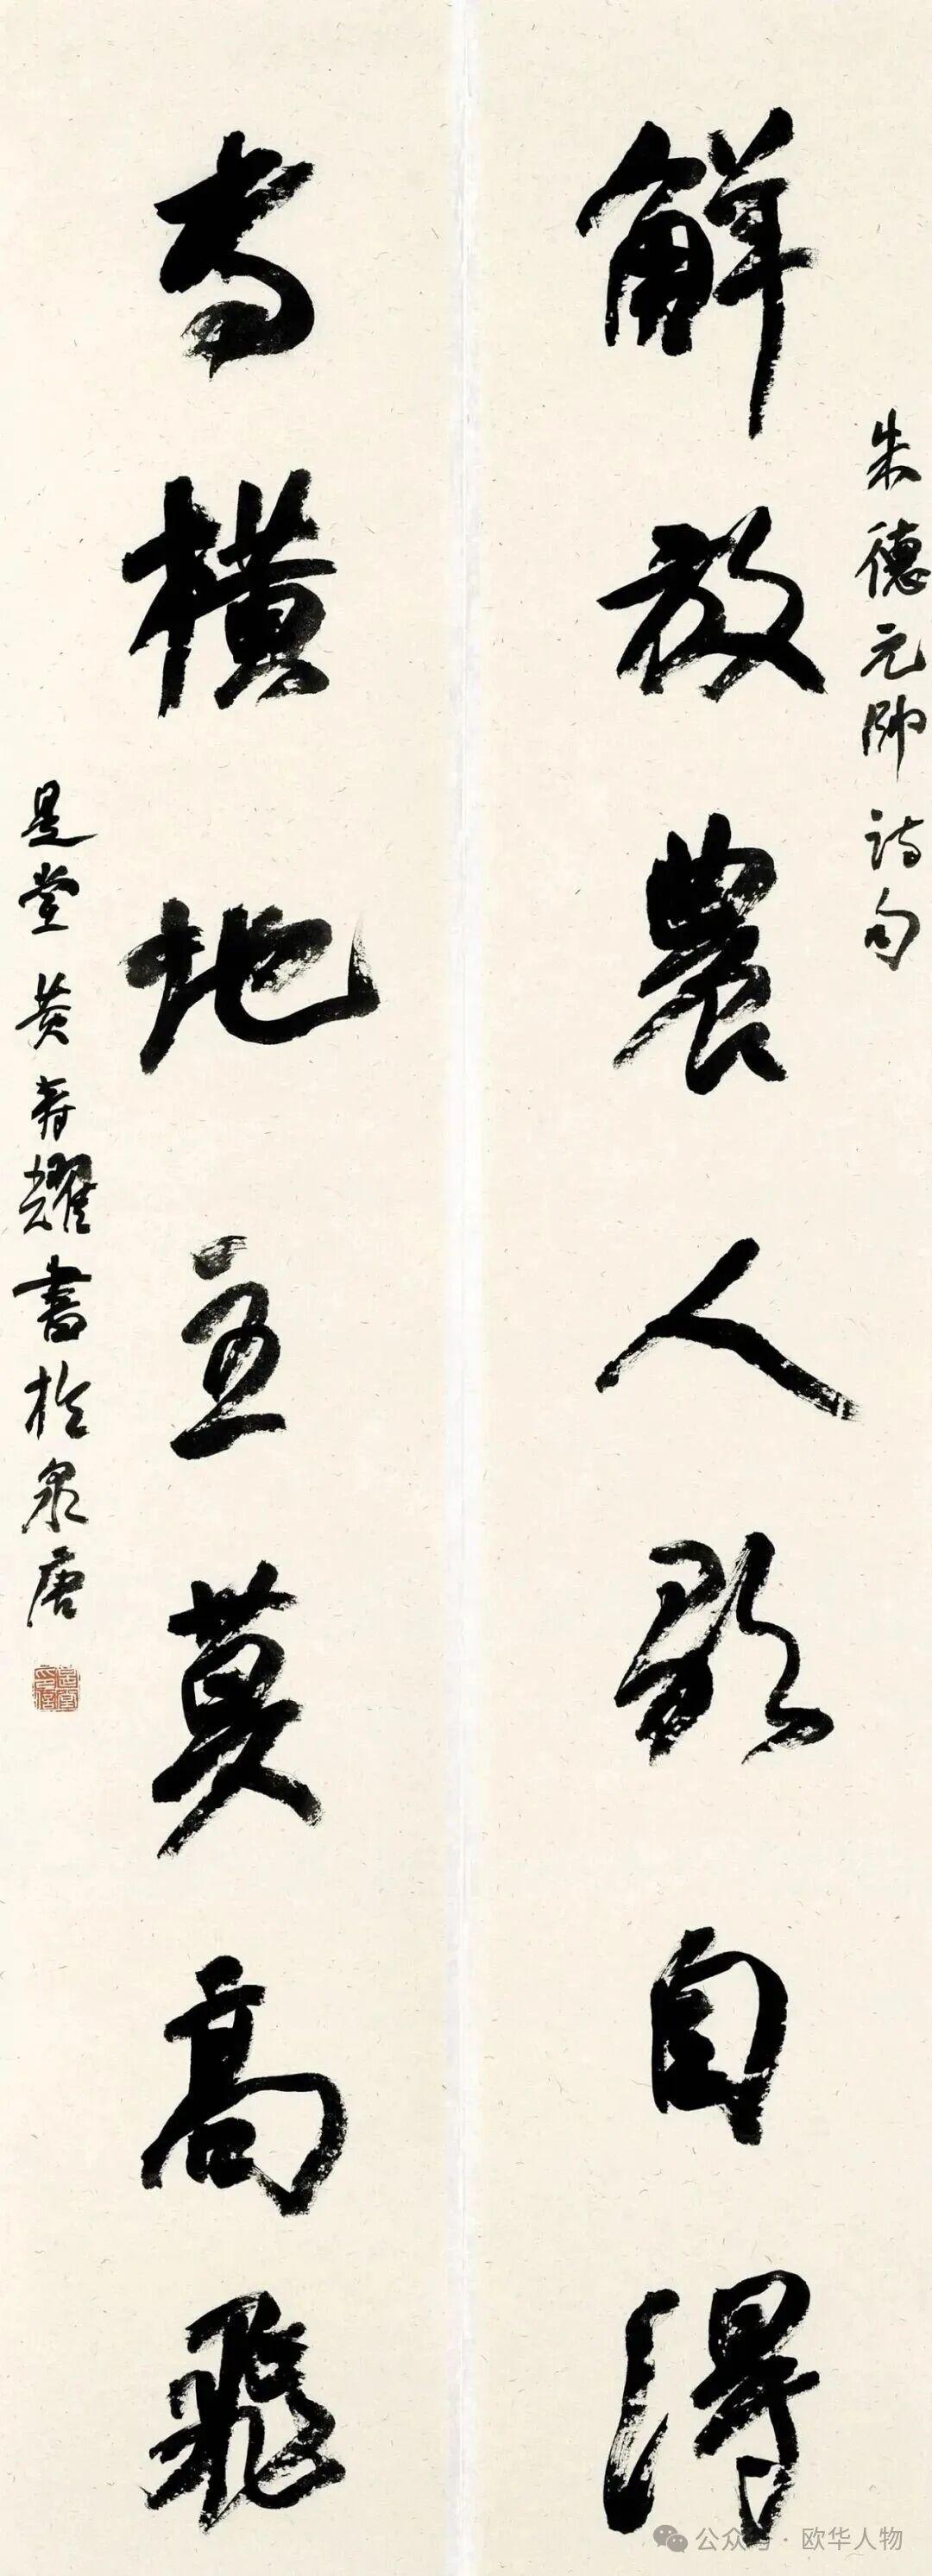 朱德元帥詩句
解放農人歌自得
專橫地主莫高飛
是堂黃壽耀書於泉唐
是堂印信
公众号 · 欧华人物